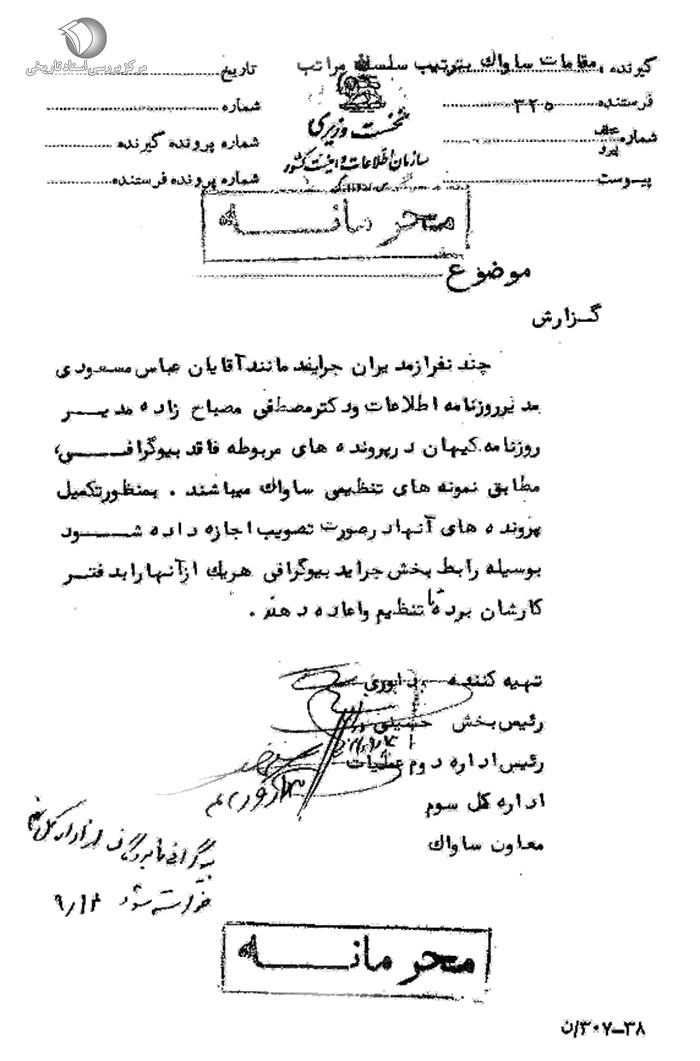 مرکز بررسی اسناد تاریخی
گیرنده، مقامات ساواك بترتیب سلسله مراتب
فرستنده ۳۲۵
شماره
پیوست
نخست وزیری
سازمان اطلاعات و امنیت کشور
تاریخ
شماره
شماره پرونده گیرنده
شماره پرونده فرستنده
محرمانه
موضوع
گزارش
چند نفر از مدیران جراید مانند آقایان عباس مسعودی
مدیر روزنامه اطلاعات ودکتر مصطفی مصباح زاده مدیر
روزنامه کیهان در پرونده های مربوطه فاقد بیوگرافی،
مطابق نمونه های تنظیمی ساواك میباشند . بمنظور تکمیل
پرونده های آنها در صورت تصویب اجازه داده شود
بوسیله رابط بخش جراید بیوگرافی هریك از آنها را بدفتر
کارشان برده تا تنظیم واعاده دهند .
تهیه کننده
رئیس بخش حسینی
رئیس اداره دوم عملیات
اداره کل سوم
معاون ساواك
خواسته شود ۹/۱۲
محرمانه
۳۸-۳۰۷/ن